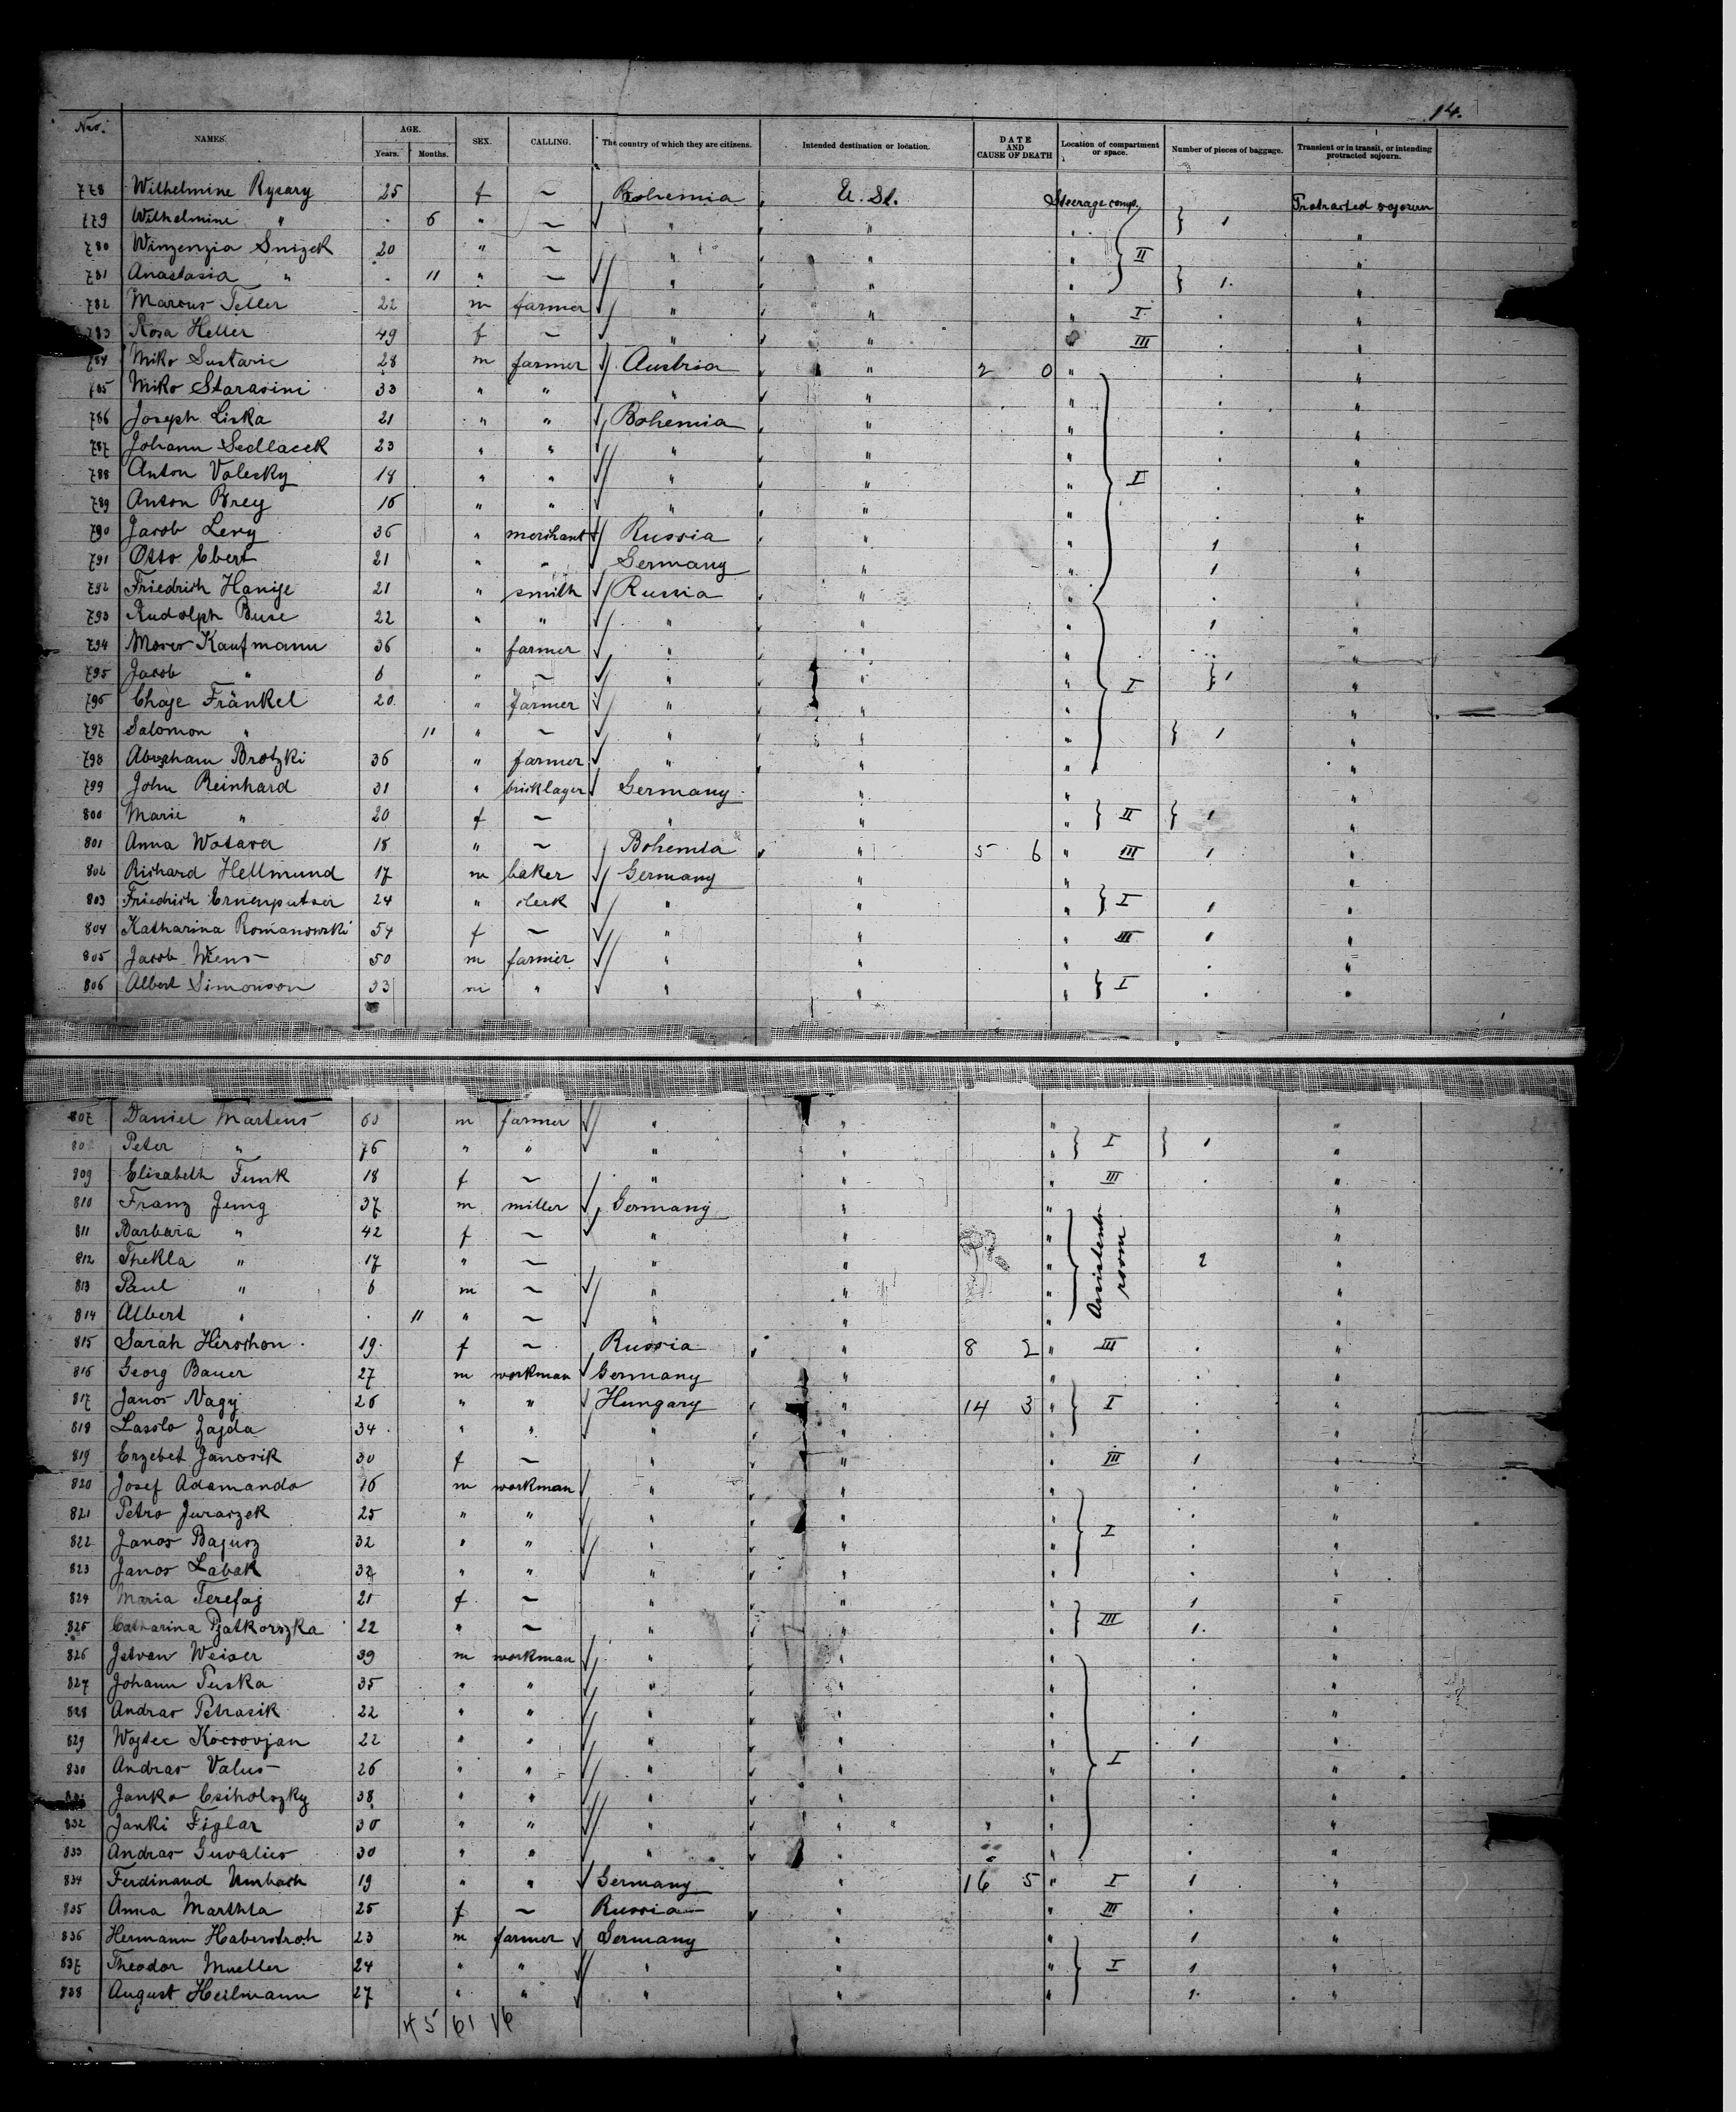 14.
Nro. NAMES. AGE. Years. Months. SEX. CALLING. The country of which they are citizens. Intended destination or location. DATE AND CAUSE OF DEATH Location of compartment or space. Number of pieces of baggage. Transient or in transit, or intending protracted sojourn.
778 Wilhelmine Rysary 25 f ~ Bohemia U. St. Steerage comp. Protracted sojourn
779 Wilhelmine " . 6 " ~ " " " } 1 "
780 Winzenzia Snizek 20 " ~ " " " } II "
781 Anastasia " . 11 " ~ " " " } 1 "
782 Marcus Teller 22 m farmer " " " I . "
783 Rosa Heller 49 f ~ " " " III . "
784 Miko Sustaric 28 m farmer Austria " 2 0 " . "
785 Miko Starasini 33 " " " " " . "
786 Joseph Liska 21 " " Bohemia " " . "
787 Johann Sedlacek 23 " " " " " . "
788 Anton Valesky 18 " " " " " } I . "
789 Anton Brey 16 " " " " " . "
790 Jacob Levy 36 " merchant Russia " " 1 "
791 Otto Ebert 21 " " Germany " " 1 "
792 Friedrich Hanije 21 " smith Russia " " . "
793 Rudolph Buse 22 " " " " " 1 "
794 Moses Kaufmann 36 " farmer " " " . "
795 Jacob " 6 " ~ " " " } I } 1 "
796 Chaje Fränkel 20 " farmer " " " "
797 Salomon " 11 " ~ " " " } 1 "
798 Abraham Brotzki 36 " farmer " " " "
799 John Reinhard 31 " bricklayer Germany " " "
800 Marie " 20 f ~ " " " } II } 1 "
801 Anna Watava 18 " ~ Bohemia " 5 6 " III 1 "
802 Richard Hellmund 17 m baker Germany " " "
803 Friedrich Ernenputser 24 " clerk " " " } I 1 "
804 Katharina Romanowski 54 f ~ " " " III 1 "
805 Jacob Wiens 50 m farmer " " " . "
806 Albert Simonson 33 m " " " " } I . "
807 Daniel Martens m farmer " " " "
Peter " 76 " " " " " } I } 1 "
809 Elisabeth Funk 18 f ~ " " " III . "
810 Franz Jung 37 m miller Germany " " "
811 Barbara " 42 f ~ " " " Assistents room "
812 Thekla " 17 " ~ " " " 2 "
813 Paul " 6 m ~ " " " "
814 Albert " . 11 " ~ " " " "
815 Sarah Hirschon 19 f ~ Russia " 8 2 " III . "
816 Georg Bauer 27 m workman Germany " " . "
817 Janos Nagy 26 " " Hungary " 14 3 " } I . "
818 Laszlo Zajda 34 " " " " " . "
819 Erzebet Janosik 30 f ~ " " " III 1 "
820 Josef Adamando 16 m workman " " " . "
821 Petro Juraszek 25 " " " " " . "
822 Janos Bajusz 32 " " " " " } I . "
823 Janos Labak 32 " " " " " . "
824 Maria Terefaj 21 f ~ " " " 1 "
825 Catharina Pjatkorszka 22 " ~ " " " } III 1 "
826 Istvan Weiser 39 m workman " " " . "
827 Johann Puska 35 " " " " " . "
828 Andras Petrasik 22 " " " " " . "
829 Wojtec Kocsovjan 22 " " " " " 1 "
830 Andras Valus 26 " " " " " } I . "
Janko Csiholszky 38 " " " " " . "
832 Janki Figlar 30 " " " " " . "
833 Andras Guvalics 30 " " " " " . "
834 Ferdinand Umbach 19 " " Germany " 16 5 " I 1 "
835 Anna Marthta 25 f ~ Russia " " III . "
836 Hermann Haberstroh 23 m farmer Germany " " 1 "
837 Theodor Mueller 24 " " " " " } I 1 "
838 August Heilmann 27 " " " " " 1 "
45 61 16